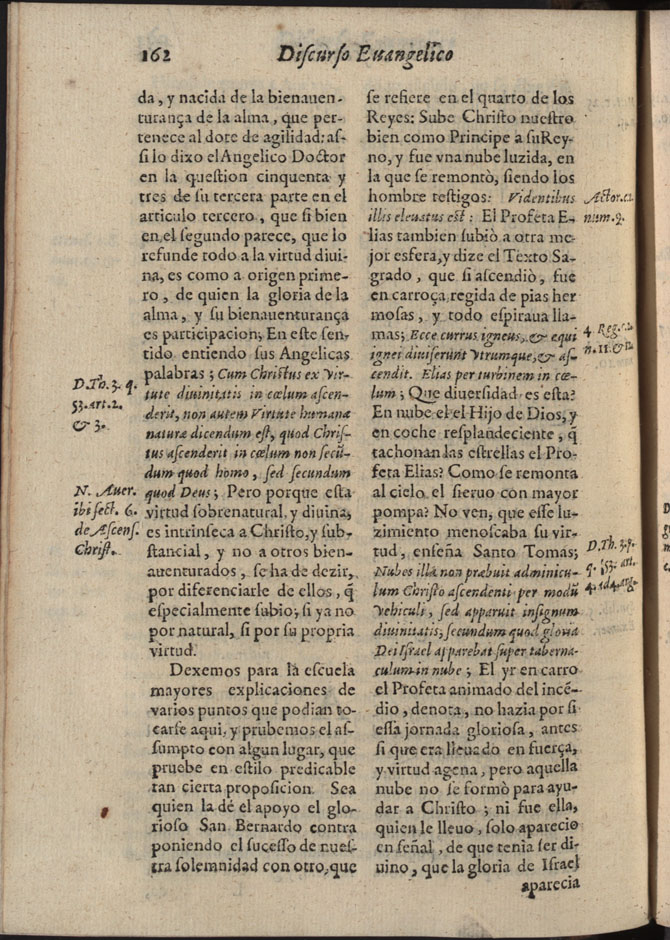 162
Discurso Euangelico
da, y nacida de la bienauen-
turança de la alma, que per-
tenece al dote de agilidad: as-
si lo dixo el Angelico Doctor
en la question cinquenta y
tres de su tercera parte en el
articulo tercero, que si bien
en el segundo parece, que lo
refunde todo a la virtud diui-
na, es como a origen prime-
ro, de quien la gloria de la
alma, y su bienauenturança
es participacion; En este sen-
tido entiendo sus Angelicas
palabras; Cum Christus ex Vir-
tute diuinitatis in cœlum ascen-
derit, non autem Virtute humanæ
naturæ dicendum est, quod Chris-
tus ascenderit in cœlum non secũ-
dum quod homo, sed secundum
quod Deus; Pero porque esta
virtud sobrenatural, y diuina,
es intrinseca a Christo, y sub-
stancial, y no a otros bien-
auenturados, se ha de dezir,
por diferenciarle de ellos, q̃
especialmente subio; si ya no
por natural, si por su propria
virtud.
Dexemos para la escuela
mayores explicaciones de
varios puntos que podian to-
carse aqui, y prubemos el as-
sumpto con algun lugar, que
pruebe en estilo predicable
tan cierta proposicion. Sea
quien la dé el apoyo el glo-
rioso San Bernardo contra
poniendo el sucesso de nues-
tra solemnidad con otro, que
D. Th. 3. q.
53. art. 2.
& 3.
N. Auer.
ibi sect. 6.
de Ascens.
Christ.
se refiere en el quarto de los
Reyes: Sube Christo nuestro
bien como Principe a su Rey-
no, y fue vna nube luzida, en
la que se remontò, siendo los
hombre testigos: Videntibus
illis eleuatus est: El Profeta E-
lias tambien subiò a otra me-
jor esfera, y dize el Texto Sa-
grado, que si ascendiò, fue
en carroça regida de pias her
mosas, y todo espiraua lla-
mas; Ecce currus igneus, & equi
ignei diuiserunt Vtrumque, & as-
cendit. Elias per turbinem in cœ-
lum; Que diuersidad es esta?
En nube el el Hijo de Dios, y
en coche resplandeciente, q̃
tachonan las estrellas el Pro-
feta Elias? Como se remonta
al cielo el sieruo con mayor
pompa? No ven, que esse lu-
zimiento menoscaba su vir-
tud, enseña Santo Tomas;
Nubes illa non præbuit adminicu-
lum Christo ascendenti per modũ
Vehiculi, sed apparuit insignum
diuinitatis, secundum quod gloria
Dei Israel apparebat super taberna-
culum in nube; El yr en carro
el Profeta animado del incẽ-
dio, denota, no hazia por si
essa jornada gloriosa, antes
si que era lleuado en fuerça,
y virtud agena, pero aquella
nube no se formò para ayu-
dar a Christo; ni fue ella,
quien le lleuo, solo aparecio
en señal, de que tenia ser di-
uino, que la gloria de Israel
aparecia
Actor. c.1.
num. 9.
4. Reg. c.2.
n. 11. & 12.
D. Th. 3. p.
q. 53. art.
4. ad 4. arg.